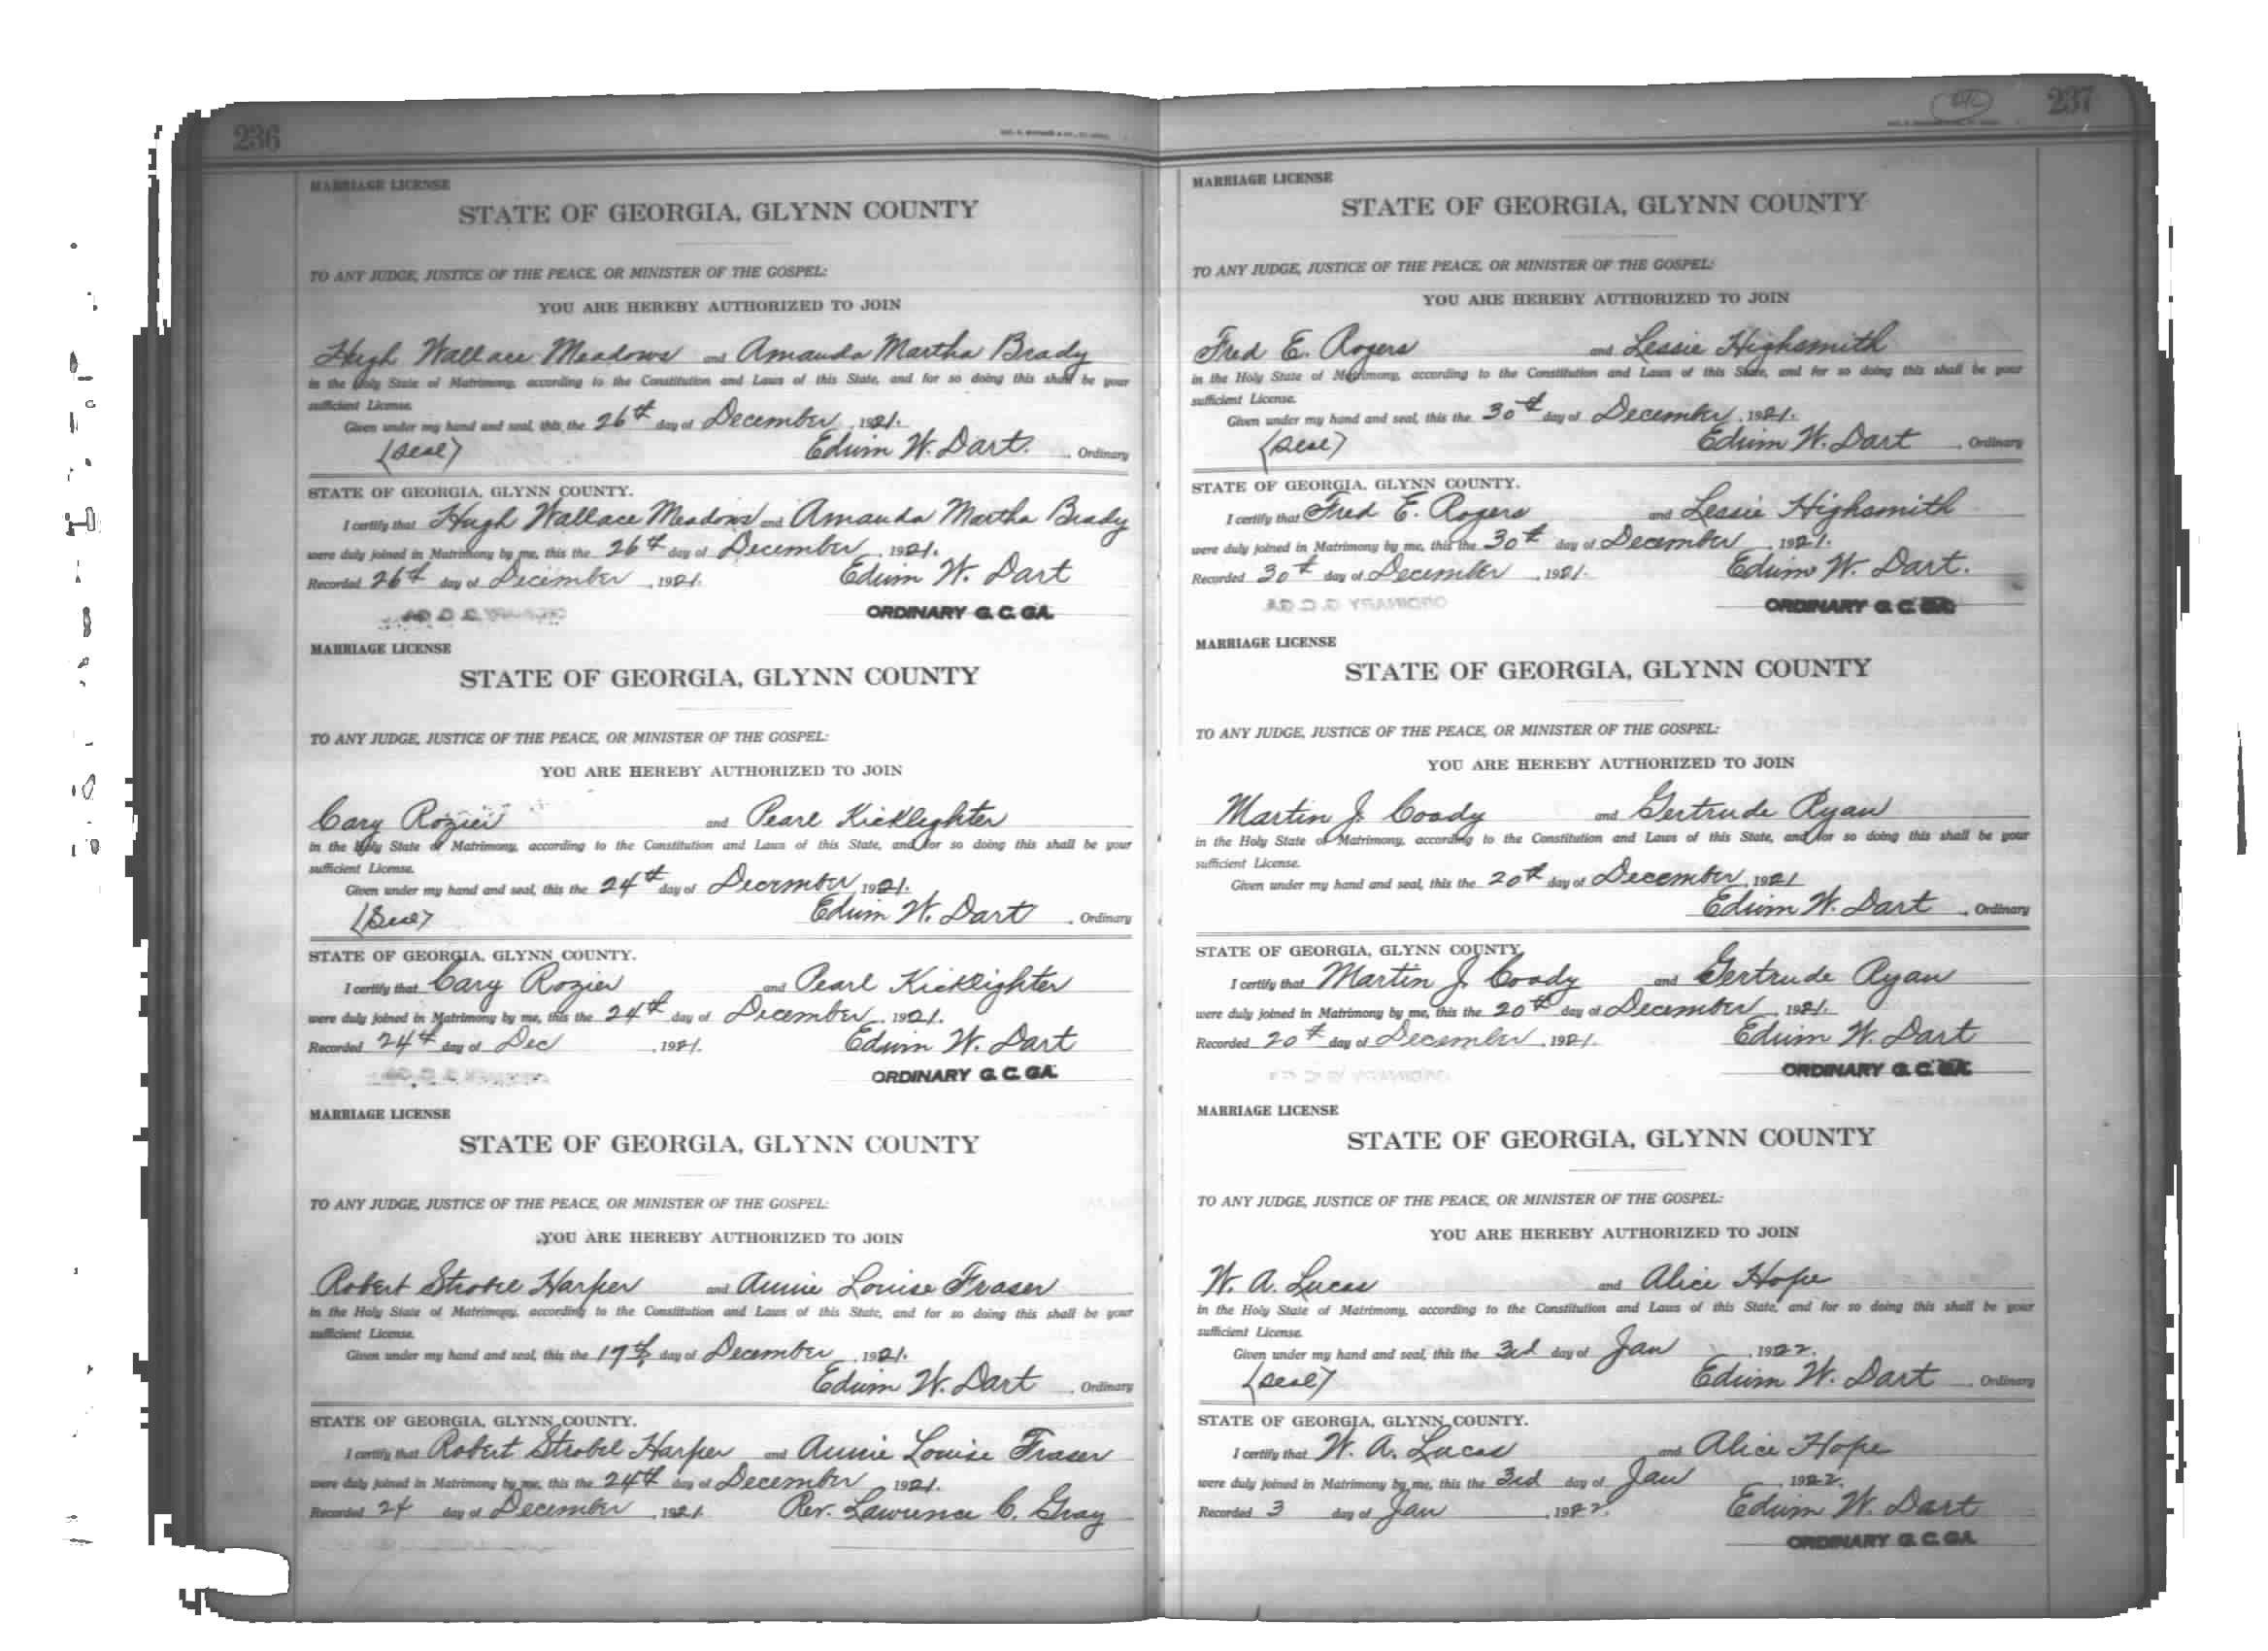 236
MARRIAGE LICENSE
STATE OF GEORGIA, GLYNN COUNTY
TO ANY JUDGE, JUSTICE OF THE PEACE, OR MINISTER OF THE GOSPEL:
YOU ARE HEREBY AUTHORIZED TO JOIN
Hugh Wallace Meadows and Amanda Martha Brady
in the Holy State of Matrimony, according to the Constitution and Laws of this State, and for so doing this shall be your
sufficient License.
Given under my hand and seal, this the 26th day of December, 1921.
(Seal) Edwin W. Dart. Ordinary
STATE OF GEORGIA, GLYNN COUNTY.
I certify that Hugh Wallace Meadows and Amanda Martha Brady
were duly joined in Matrimony by me, this the 26th day of December, 1921.
Recorded 26th day of December, 1921. Edwin W. Dart
ORDINARY G. C. GA.
MARRIAGE LICENSE
STATE OF GEORGIA, GLYNN COUNTY
TO ANY JUDGE, JUSTICE OF THE PEACE, OR MINISTER OF THE GOSPEL:
YOU ARE HEREBY AUTHORIZED TO JOIN
Cary Rozier and Pearl Kicklighter
in the Holy State of Matrimony, according to the Constitution and Laws of this State, and for so doing this shall be your
sufficient License.
Given under my hand and seal, this the 24th day of December, 1921.
(Seal) Edwin W. Dart, Ordinary
STATE OF GEORGIA, GLYNN COUNTY.
I certify that Cary Rozier and Pearl Kicklighter
were duly joined in Matrimony by me, this the 24th day of December, 1921.
Recorded 24th day of Dec, 1921. Edwin W. Dart
ORDINARY G. C. GA.
MARRIAGE LICENSE
STATE OF GEORGIA, GLYNN COUNTY
TO ANY JUDGE, JUSTICE OF THE PEACE, OR MINISTER OF THE GOSPEL:
YOU ARE HEREBY AUTHORIZED TO JOIN
Robert Strobel Harper and Annie Louise Fraser
in the Holy State of Matrimony, according to the Constitution and Laws of this State, and for so doing this shall be your
sufficient License.
Given under my hand and seal, this the 17th day of December, 1921.
Edwin W. Dart, Ordinary
STATE OF GEORGIA, GLYNN COUNTY.
I certify that Robert Strobel Harper and Annie Louise Fraser
were duly joined in Matrimony by me, this the 24th day of December, 1921.
Recorded 24 day of December, 1921. Rev. Lawrence C. Gray
237
MARRIAGE LICENSE
STATE OF GEORGIA, GLYNN COUNTY
TO ANY JUDGE, JUSTICE OF THE PEACE, OR MINISTER OF THE GOSPEL:
YOU ARE HEREBY AUTHORIZED TO JOIN
Fred E. Rogers and Lessie Highsmith
in the Holy State of Matrimony, according to the Constitution and Laws of this State, and for so doing this shall be your
sufficient License.
Given under my hand and seal, this the 30th day of December, 1921.
(Seal) Edwin W. Dart, Ordinary
STATE OF GEORGIA, GLYNN COUNTY.
I certify that Fred E. Rogers and Lessie Highsmith
were duly joined in Matrimony by me, this the 30th day of December, 1921.
Recorded 30th day of December, 1921. Edwin W. Dart.
ORDINARY G. C. GA.
MARRIAGE LICENSE
STATE OF GEORGIA, GLYNN COUNTY
TO ANY JUDGE, JUSTICE OF THE PEACE, OR MINISTER OF THE GOSPEL:
YOU ARE HEREBY AUTHORIZED TO JOIN
Martin J. Coody and Gertrude Ryan
in the Holy State of Matrimony, according to the Constitution and Laws of this State, and for so doing this shall be your
sufficient License.
Given under my hand and seal, this the 20th day of December, 1921
Edwin W. Dart, Ordinary
STATE OF GEORGIA, GLYNN COUNTY.
I certify that Martin J. Coody and Gertrude Ryan
were duly joined in Matrimony by me, this the 20th day of December, 1921.
Recorded 20th day of December, 1921. Edwin W. Dart
ORDINARY G. C. GA.
MARRIAGE LICENSE
STATE OF GEORGIA, GLYNN COUNTY
TO ANY JUDGE, JUSTICE OF THE PEACE, OR MINISTER OF THE GOSPEL:
YOU ARE HEREBY AUTHORIZED TO JOIN
W. A. Lucas and Alice Hope
in the Holy State of Matrimony, according to the Constitution and Laws of this State, and for so doing this shall be your
sufficient License.
Given under my hand and seal, this the 3rd day of Jan, 1922.
(Seal) Edwin W. Dart, Ordinary
STATE OF GEORGIA, GLYNN COUNTY.
I certify that W. A. Lucas and Alice Hope
were duly joined in Matrimony by me, this the 3rd day of Jan, 1922.
Recorded 3 day of Jan, 1922. Edwin W. Dart
ORDINARY G. C. GA.